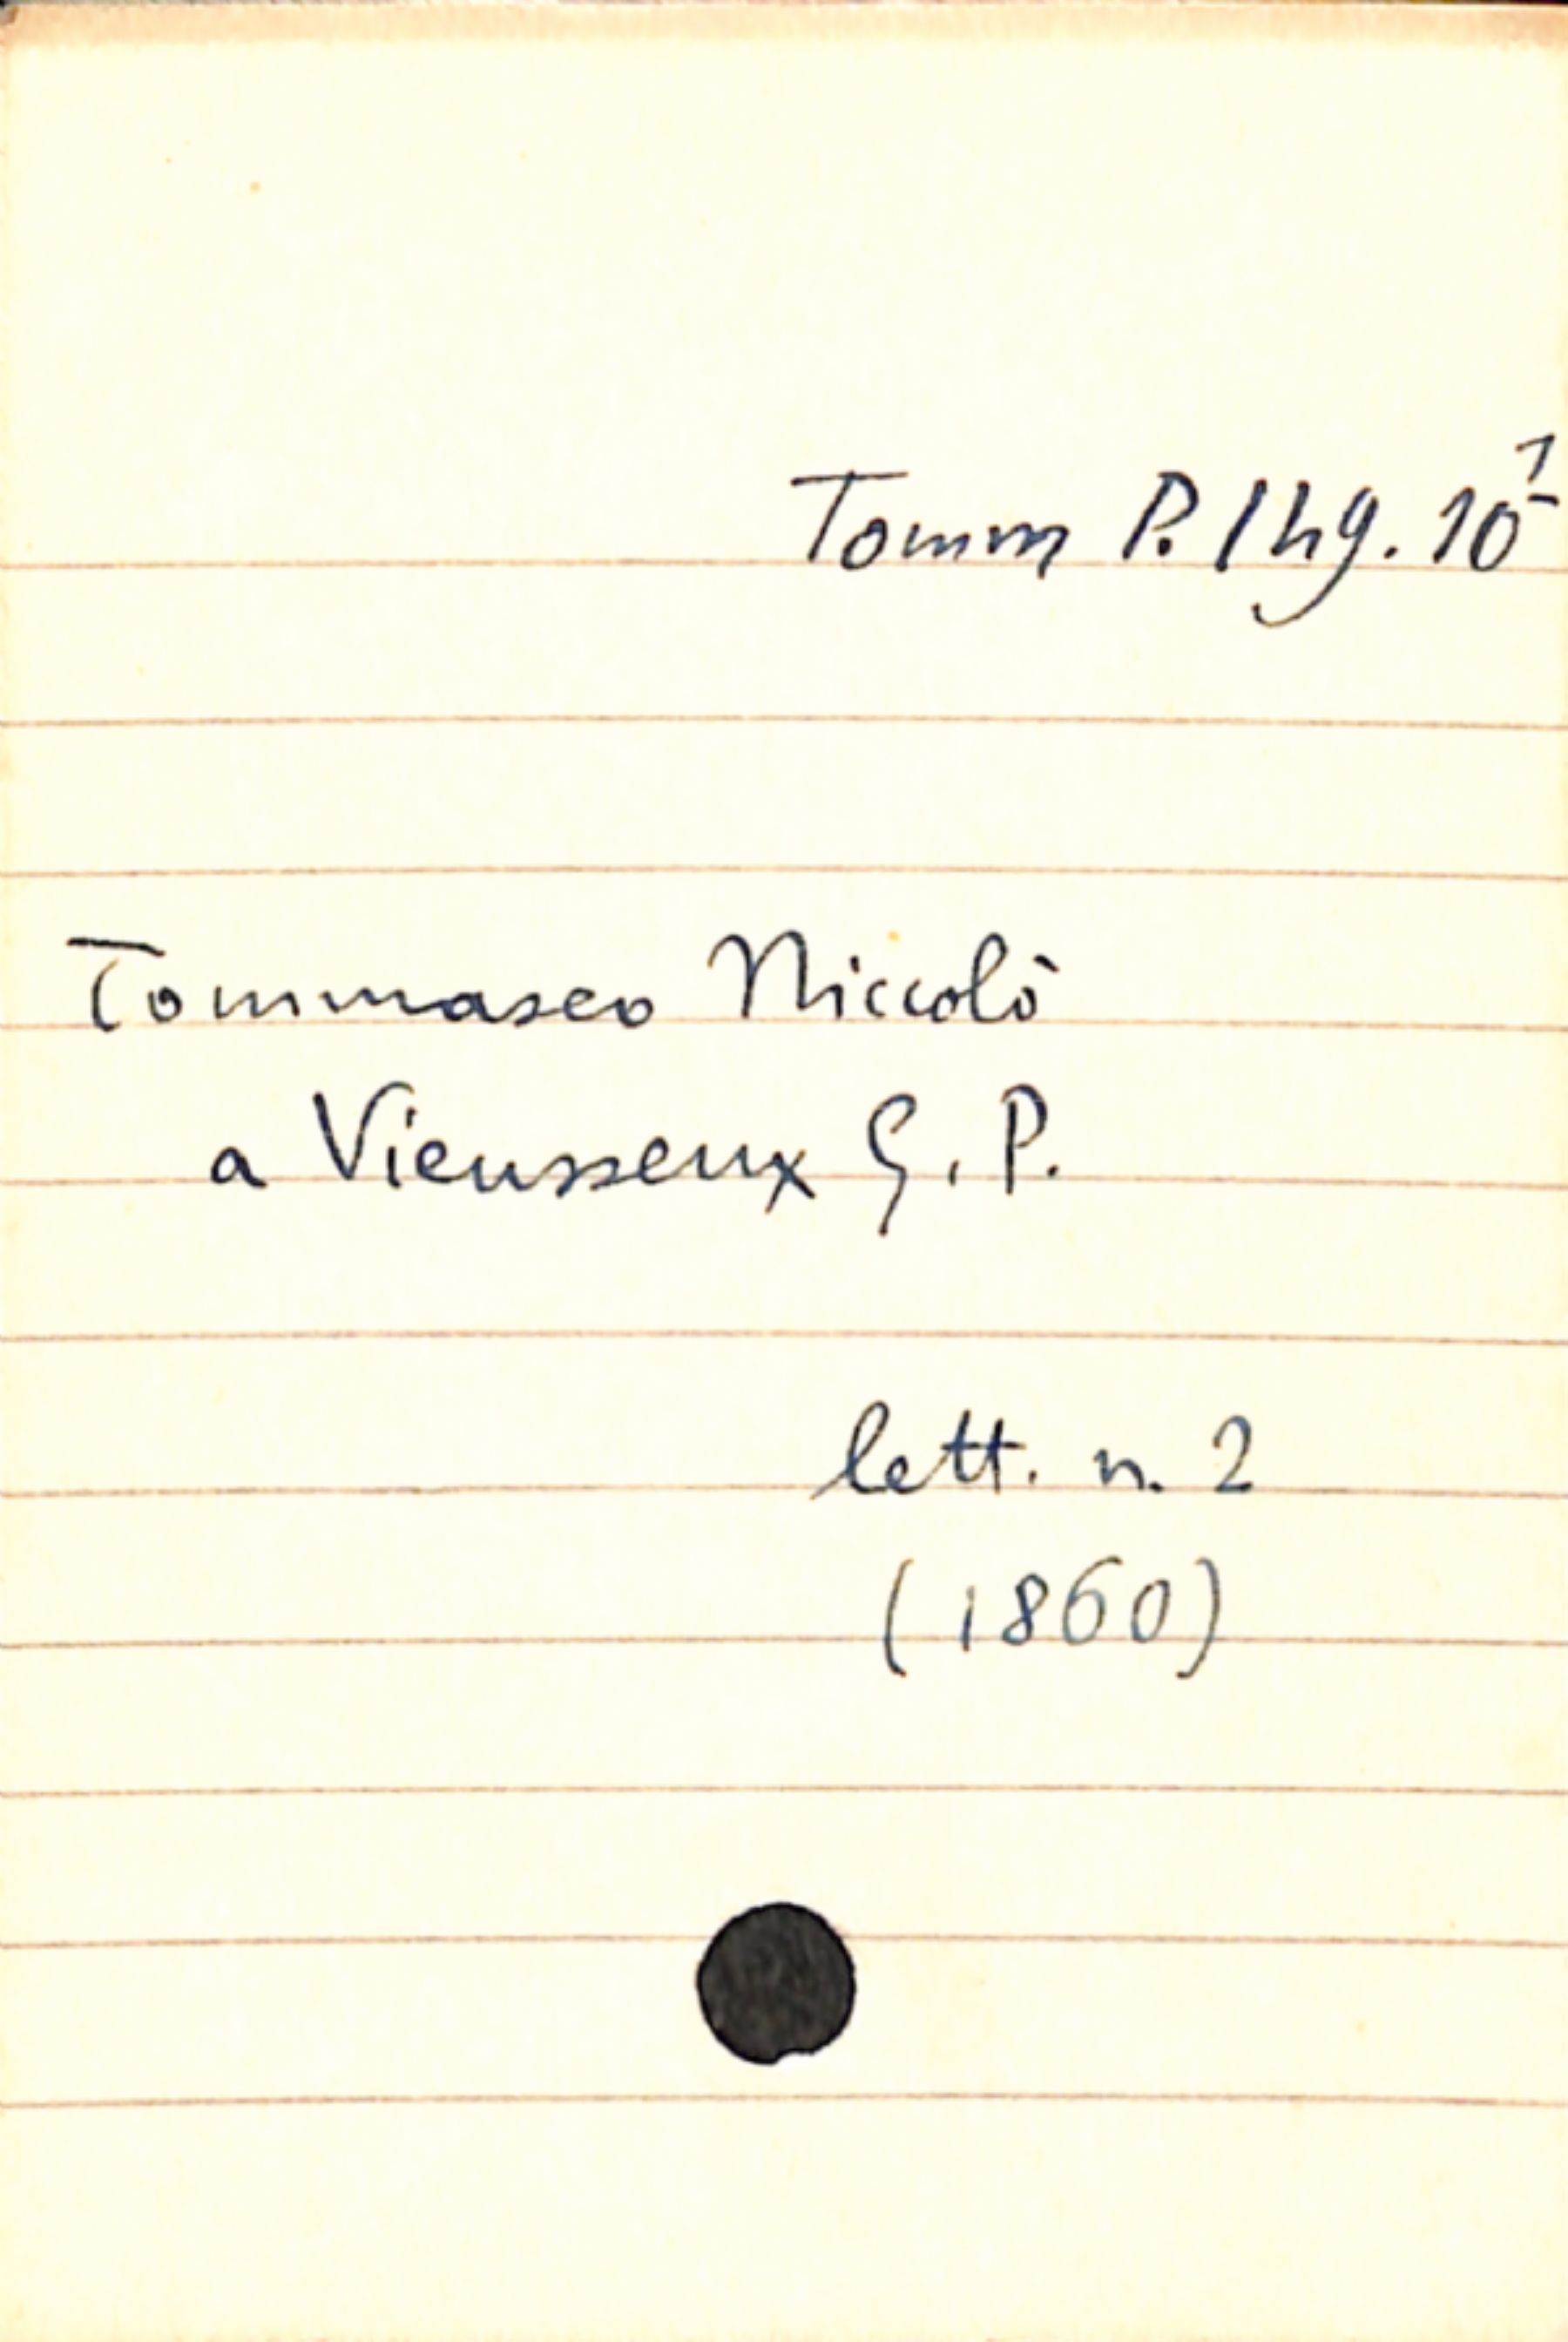 Tomm P. 149. 10¹
Tommaseo Niccolò
a Vieusseux G. P.
lett. n. 2
(1860)